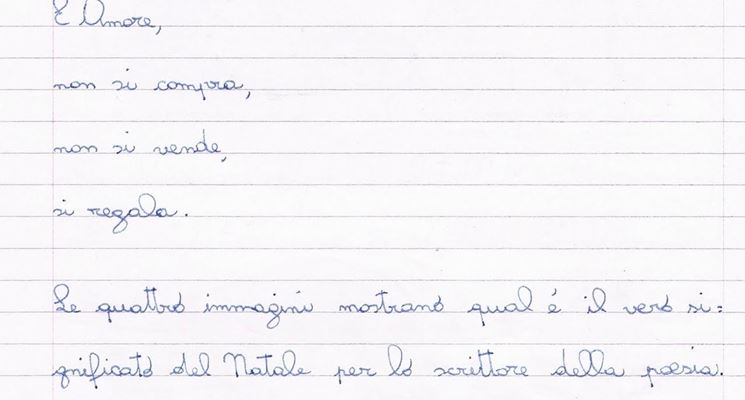 E Amore,
non si compra,
non si vende,
si regala.
Le quattro immagini mostrano qual é il vero si=
gnificato del Natale per lo scrittore della poesia.